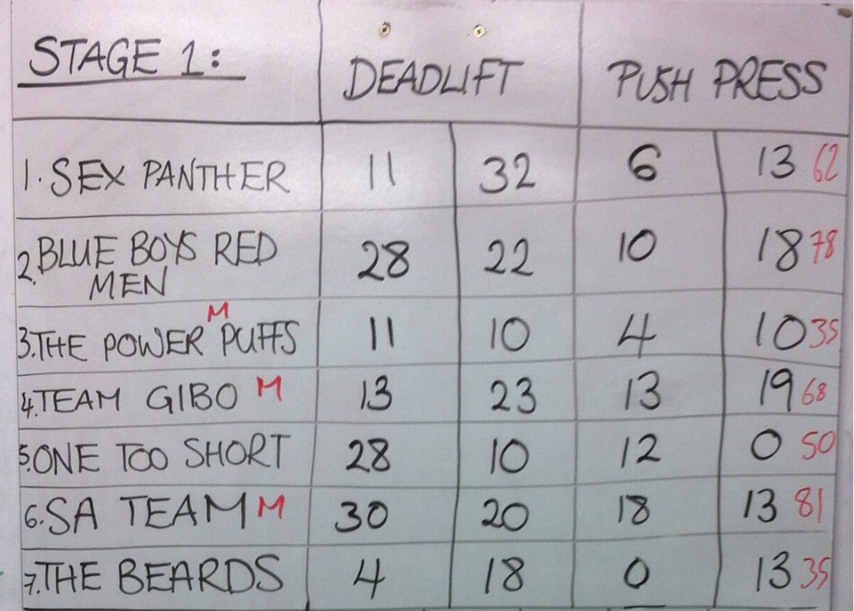 STAGE 1: DEADLIFT PUSH PRESS
1. SEX PANTHER 11 32 6 13 62
2. BLUE BOYS RED 28 22 10 18 78
MEN
M
3. THE POWER PUFFS 11 10 4 10 35
4. TEAM GIBO M 13 23 13 19 68
5. ONE TOO SHORT 28 10 12 0 50
6. SA TEAM M 30 20 18 13 81
7. THE BEARDS 4 18 0 13 35